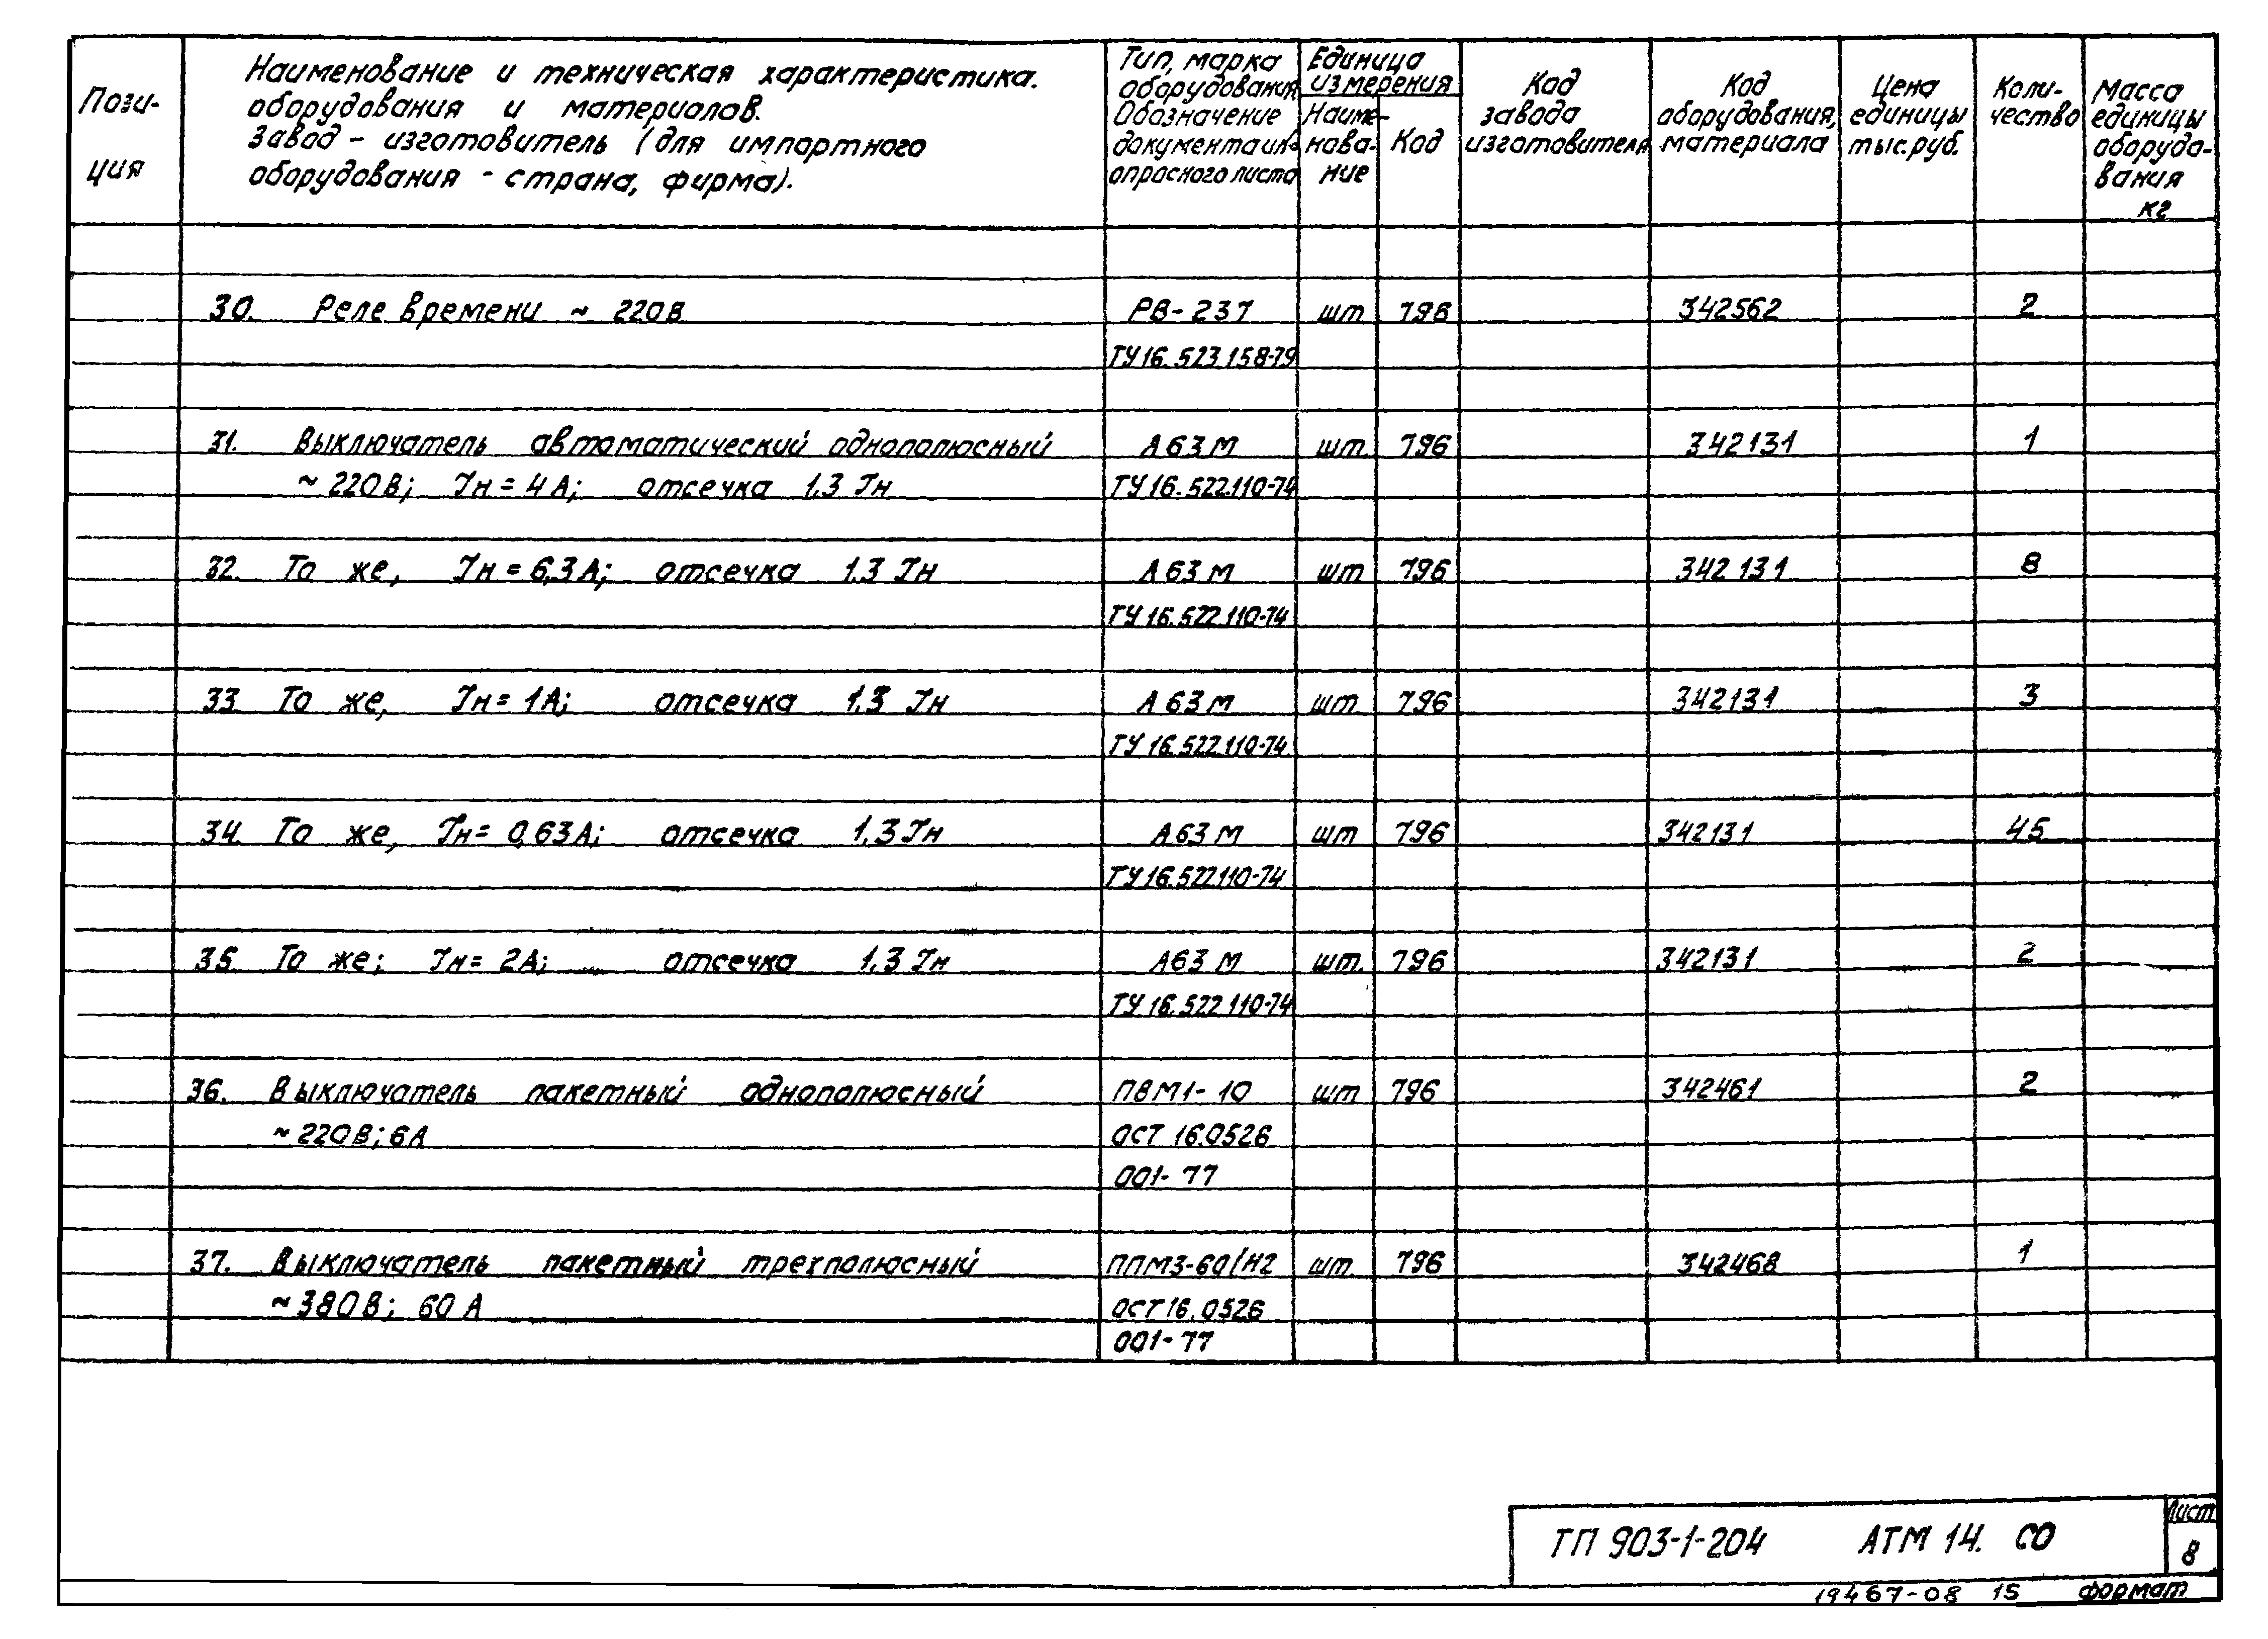 Пози-
ция
Наименование и техническая характеристика.
оборудования и материалов.
Завод - изготовитель (для импортного
оборудования - страна, фирма).
Тип, марка
оборудования
Обозначение
документа и №
опросного листа
Единица
измерения
Наиме-
нова-
ние
Код
Код
завода
изготовителя
Код
оборудования,
материала
Цена
единицы
тыс.руб.
Коли-
чество
Масса
единицы
оборудо-
вания
кг
30. Реле времени ~ 220В РВ-237 шт 796 342562 2
ТУ16.523.158-79
31. Выключатель автоматический однополюсный А63М шт. 796 342131 1
~ 220В; Iн = 4А; отсечка 1,3 Iн ТУ16.522.110-74
32. То же, Iн = 6,3А; отсечка 1,3 Iн А63М шт 796 342131 8
ТУ16.522.110-74
33 То же, Iн = 1А; отсечка 1,3 Iн А63М шт. 796 342131 3
ТУ16.522.110-74
34. То же, Iн = 0,63А; отсечка 1,3 Iн А63М шт 796 342131 45
ТУ16.522.110-74
35. То же; Iн = 2А; отсечка 1,3 Iн А63М шт. 796 342131 2
ТУ16.522.110-74
36. Выключатель пакетный однополюсный ПВМ1-10 шт 796 342461 2
~ 220В; 6А ОСТ 16.0526
001-77
37. Выключатель пакетный трехполюсный ППМ3-60/Н2 шт. 796 342468 1
~ 380В; 60А ОСТ16.0526
001-77
ТП 903-1-204 АТМ 14. СО
Лист
8
19467-08 15 формат